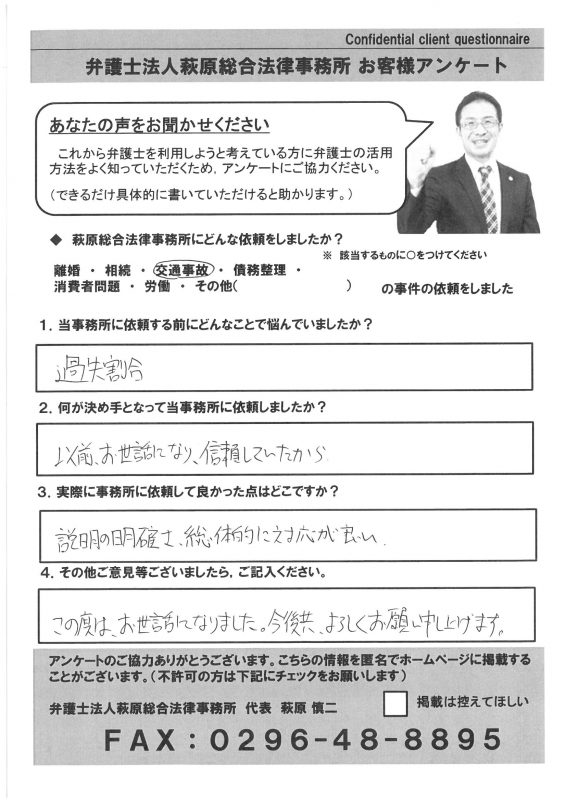 Confidential client questionnaire
弁護士法人萩原総合法律事務所 お客様アンケート
あなたの声をお聞かせください
これから弁護士を利用しようと考えている方に弁護士の活用
方法をよく知っていただくため，アンケートにご協力ください。
（できるだけ具体的に書いていただけると助かります。）
◆ 萩原総合法律事務所にどんな依頼をしましたか？
※ 該当するものに○をつけてください
離婚 ・ 相続 ・ 交通事故 ・ 債務整理 ・
消費者問題 ・ 労働 ・ その他（ ） の事件の依頼をしました
1．当事務所に依頼する前にどんなことで悩んでいましたか？
過失割合
2．何が決め手となって当事務所に依頼しましたか？
以前、お世話になり、信頼していたから
3．実際に事務所に依頼して良かった点はどこですか？
説明の明確さ、総体的に対応が良い。
4．その他ご意見等ございましたら，ご記入ください。
この度は、お世話になりました。今後共、よろしくお願い申し上げます。
アンケートのご協力ありがとうございます。こちらの情報を匿名でホームページに掲載する
ことがございます。（不許可の方は下記にチェックをお願いします）
弁護士法人萩原総合法律事務所 代表 萩原 慎二
掲載は控えてほしい
FAX：0296-48-8895